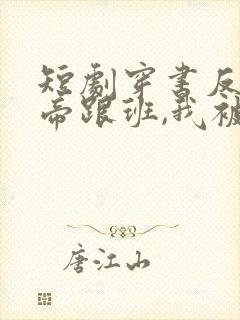 短劇穿書反
帝跟班,我被
唐江山